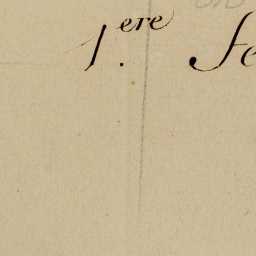 1.ere Fe